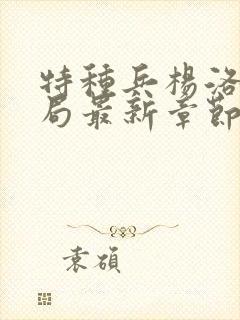 特種兵楊洛
局最新章節
袁碩